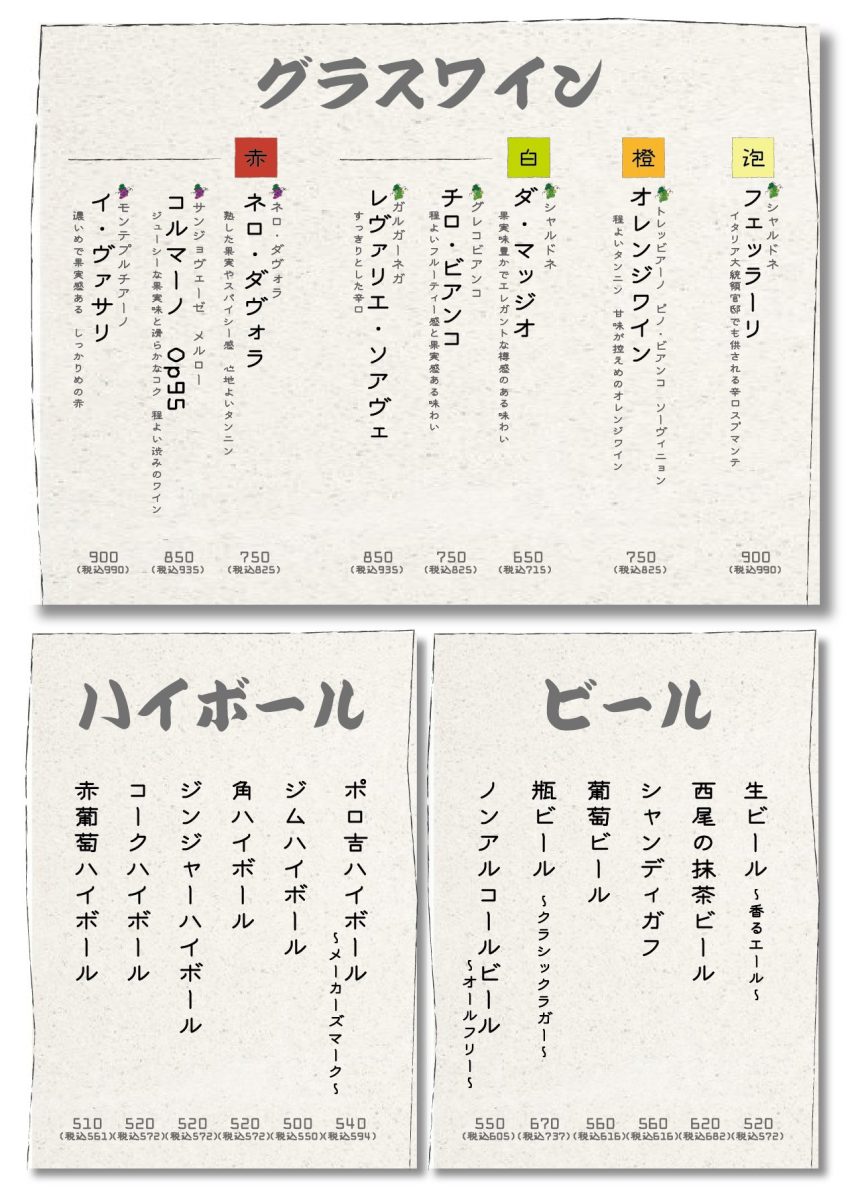 グラスワイン
泡
シャルドネ
フェッラーリ
イタリア大統領官邸でも供される辛口スプマンテ
900
(税込990)
橙
トレッビアーノ ピノ・ビアンコ ソーヴィニョン
オレンジワイン
程よいタンニン 甘味が控えめのオレンジワイン
750
(税込825)
白
シャルドネ
ダ・マッジオ
果実味豊かでエレガントな樽感のある味わい
650
(税込715)
グレコビアンコ
チロ・ビアンコ
程よいフルーティー感と果実感ある味わい
750
(税込825)
ガルガーネガ
レヴァリエ・ソアヴェ
すっきりとした辛口
850
(税込935)
赤
ネロ・ダヴォラ
ネロ・ダヴォラ
熟した果実やスパイシー感 心地よいタンニン
750
(税込825)
サンジョヴェーゼ メルロー
コルマーノ Op95
ジューシーな果実味と滑らかなコク 程よい渋みのワイン
850
(税込935)
モンテプルチアーノ
イ・ヴァサリ
濃いめで果実感ある しっかりめの赤
900
(税込990)
ビール
生ビール ~香るエール~
520
(税込572)
西尾の抹茶ビール
620
(税込682)
シャンディガフ
560
(税込616)
葡萄ビール
560
(税込616)
瓶ビール ~クラシックラガー~
670
(税込737)
ノンアルコールビール
~オールフリー~
550
(税込605)
ハイボール
ポロ吉ハイボール
~メーカーズマーク~
540
(税込594)
ジムハイボール
500
(税込550)
角ハイボール
520
(税込572)
ジンジャーハイボール
520
(税込572)
コークハイボール
520
(税込572)
赤葡萄ハイボール
510
(税込561)